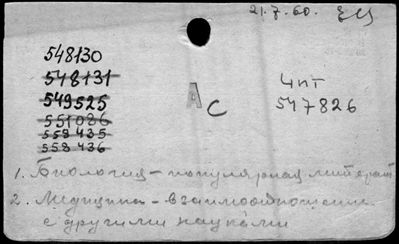 21.7.60. ЕЦ
548130
548131
549525
551086
558435
558436
Ас
Чпт
547826
1. Биология - популярная литерат
2. Медицина - взаимоотношение
с другими науками